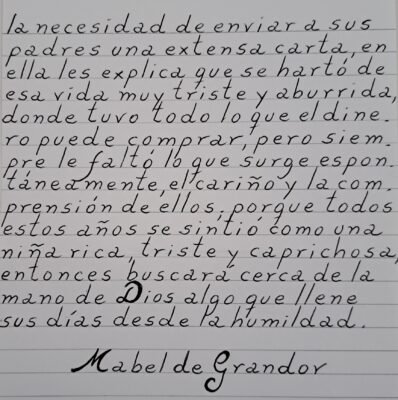 la necesidad de enviar a sus
padres una extensa carta, en
ella les explica que se hartó de
esa vida muy triste y aburrida,
donde tuvo todo lo que el dine-
ro puede comprar, pero siem-
pre le faltó lo que surge espon-
táneamente, el cariño y la com-
prensión de ellos, porque todos
estos años se sintió como una
niña rica, triste y caprichosa,
entonces buscará cerca de la
mano de Dios algo que llene
sus días desde la humildad.
Mabel de Grandor